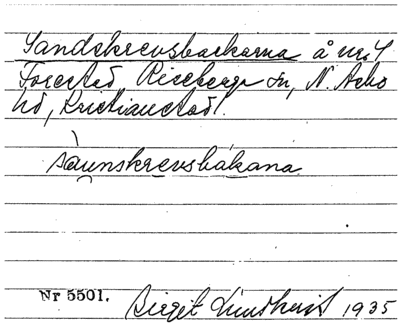 Sandskrevsbackarna å nr 4
Forestad Riseberga sn, N. Åsbo
hd, Kristianstad l.
såunskrevsbákana
Nr 5501. Birgit Lindkvist 1935